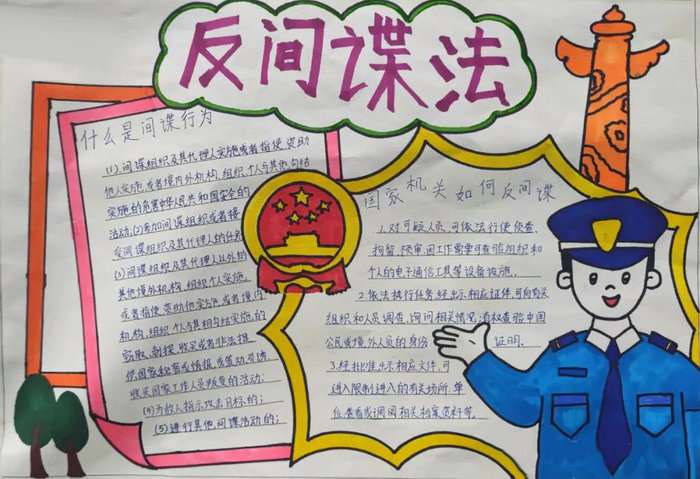 反间谍法
什么是间谍行为
(1)间谍组织及其代理人实施或者指使、资助
他人实施,或者境内外机构、组织、个人与其相勾结
实施的危害中华人民共和国国家安全的
活动;(2)参加间谍组织或者接
受间谍组织及其代理人的任务;
(3)间谍组织及其代理人以外的
其他境外机构、组织、个人实施
或者指使、资助他人实施,或者境内
机构、组织、个人与其相勾结实施的
窃取、刺探、收买或者非法提
供国家秘密或情报,或策动、引诱、
收买国家工作人员叛变的活动;
(4)为敌人指示攻击目标的;
(5)进行其他间谍活动的;
国家机关如何反间谍
1.对可疑人员,可依法行使侦查、
拘留、预审,因工作需要可查验组织和
个人的电子通信工具等设备设施。
2.依法执行任务,经出示相应证件,可向有关
组织和人员调查、询问相关情况;有权查验中国
公民或境外人员的身份证明。
3.经批准,出示相应文件,可
进入限制进入的有关场所、单
位,查看或调阅相关档案资料等。